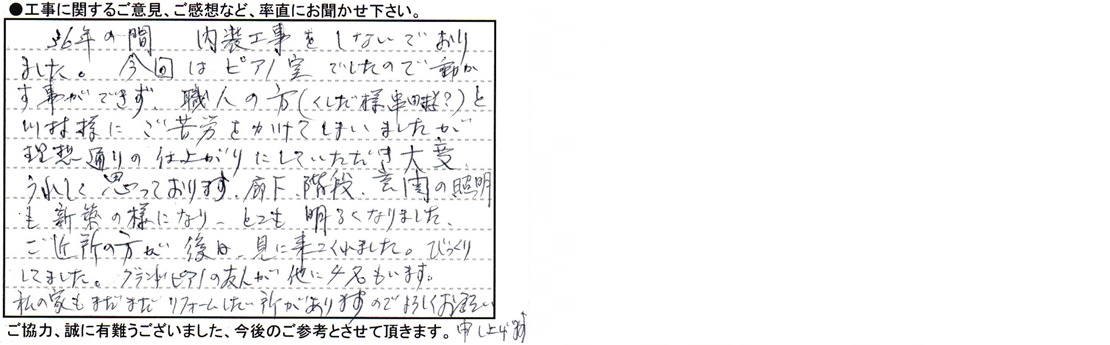 ●工事に関するご意見、ご感想など、率直にお聞かせ下さい。
36年の間 内装工事をしないでおり
ました。今回はピアノ室でしたので動か
す事ができず、職人の方(くしだ様串田様?)と
川村様にご苦労をかけてしまいましたが
理想通りの仕上がりにしていただき大変、
うれしく思っております。廊下、階段、玄関の照明
も新築の様になり、とても明るくなりました、
ご近所の方が後日、見に来てくれました。びっくり
してました。グランドピアノの友人が他に4名もいます。
私の家もまだまだリフォームしたい所がありますのでよろしくお願い
申し上げます
ご協力、誠に有難うございました、今後のご参考とさせて頂きます。